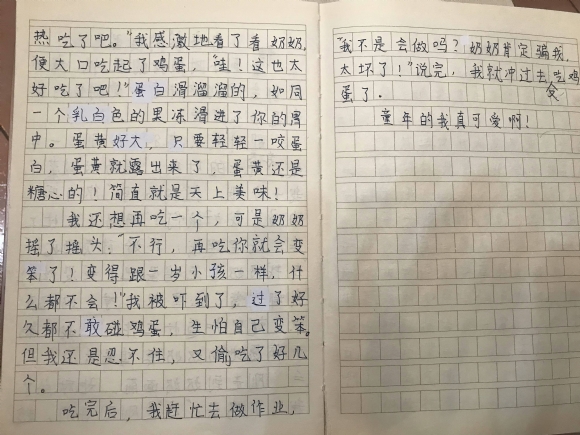 热吃了吧。"我感激地看了看奶奶,
便大口吃起了鸡蛋,"哇!这也太
好吃了吧!"蛋白滑溜溜的,如同
一个乳白色的果冻滑进了你的胃
中。蛋黄好大,只要轻轻一咬蛋
白,蛋黄就露出来了,蛋黄还是
糖心的!简直就是天上美味!
我还想再吃一个,可是奶奶
摇了摇头:"不行,再吃你就会变
笨了!变得跟一岁小孩一样,什
么都不会!"我被吓到了,过了好
久都不敢碰鸡蛋,生怕自己变笨。
但我还是忍不住,又偷吃了好几
个。
吃完后,我赶忙去做作业,
"我不是会做吗?奶奶肯定骗我,
太坏了!"说完,我就冲过去吃鸡
蛋了。
童年的我真可爱啊!